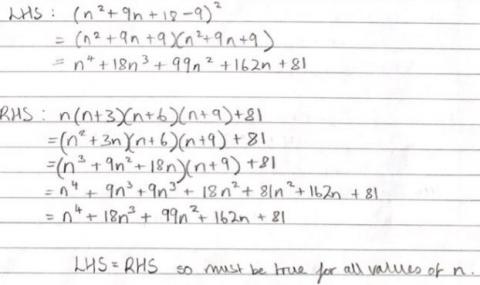 LHS: (n²+9n+18-9)²
= (n²+9n+9)(n²+9n+9)
= n⁴+18n³+99n²+162n+81
RHS: n(n+3)(n+6)(n+9)+81
=(n²+3n)(n+6)(n+9)+81
=(n³+9n²+18n)(n+9)+81
=n⁴+9n³+9n³+18n²+81n²+162n+81
=n⁴+18n³+99n²+162n+81
LHS=RHS so must be true for all values of n.